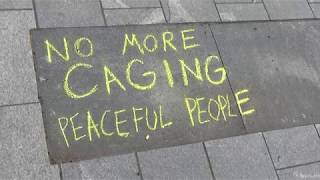 NO MORE
CAGING
PEACEFUL PEOPLE